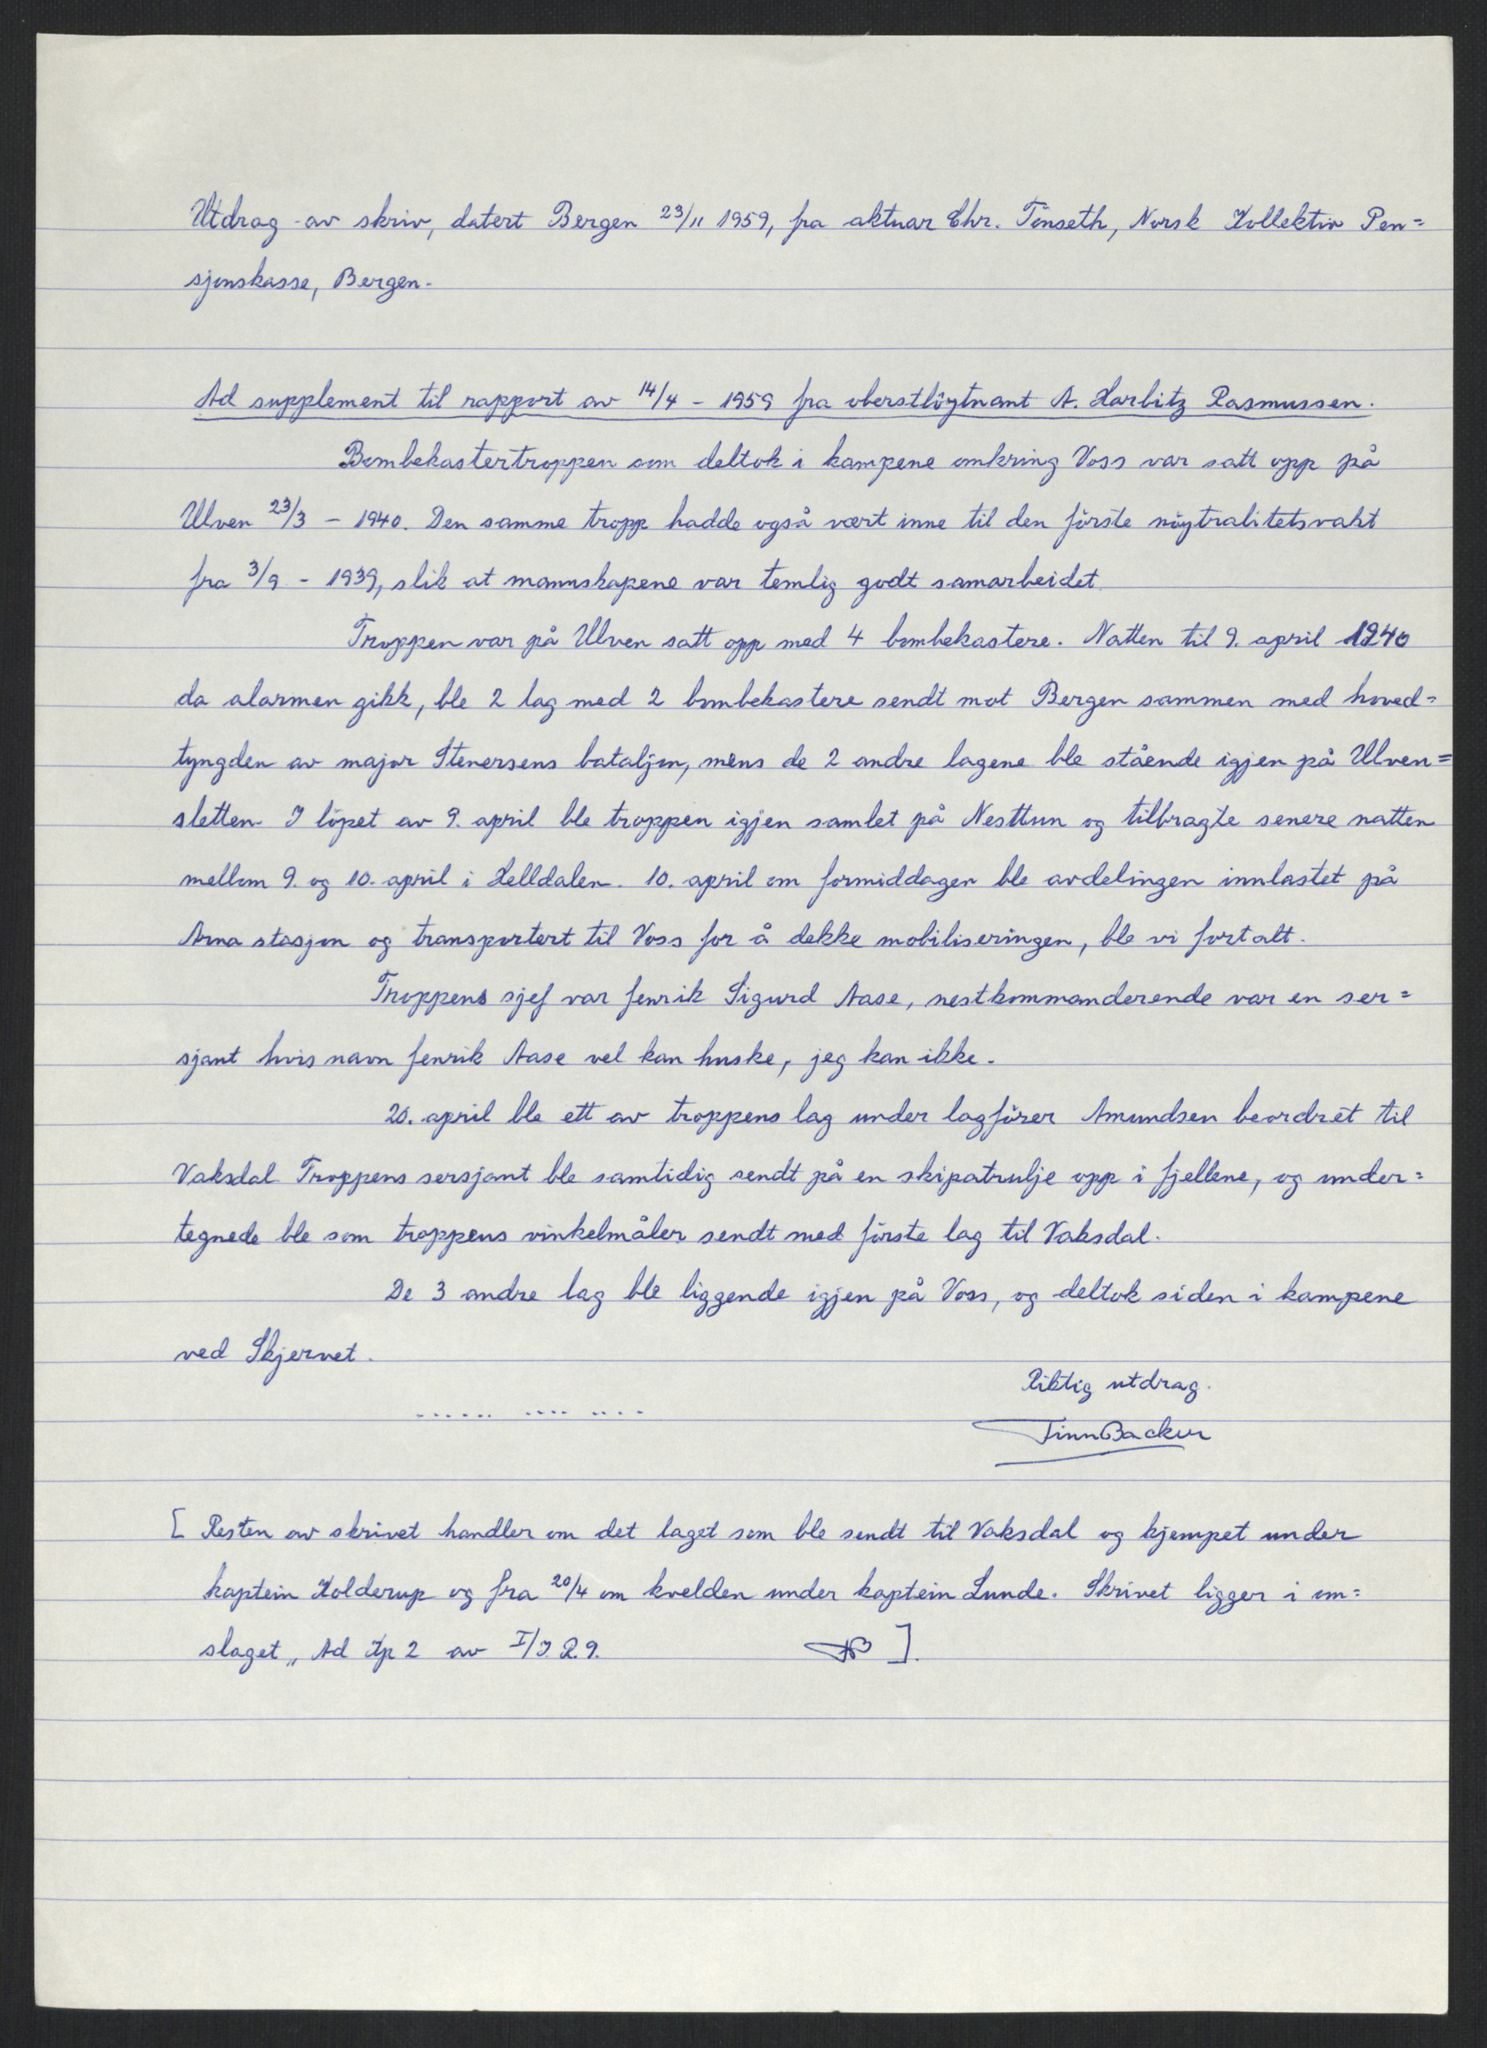 Utdrag av skriv, datert Bergen 23/11 1959, fra aktuar Chr. Tönseth, Norsk Kollektiv Pen=
sjonskasse, Bergen.
Ad supplement til rapport av 14/4 - 1959 fra oberstlöytnant A. Harbitz Rasmussen.
Bombekastertroppen som deltok i kampene omkring Voss var satt opp på
Ulven 23/3 - 1940. Den samme tropp hadde også vært inne til den förste nöytralitetsvakt
fra 3/9 - 1939, slik at mannskapene var temlig godt samarbeidet.
Troppen var på Ulven satt opp med 4 bombekastere. Natten til 9. april 1940
da alarmen gikk, ble 2 lag med 2 bombekastere sendt mot Bergen sammen med hoved=
tyngden av major Stenersens bataljon, mens de 2 andre lagene ble stående igjen på Ulven=
sletten. I löpet av 9. april ble troppen igjen samlet på Nesttun og tilbragte senere natten
mellom 9. og 10. april i Helldalen. 10. april om formiddagen ble avdelingen innlastet på
Arna stasjon og transportert til Voss for å dekke mobiliseringen, ble vi fortalt.
Troppens sjef var fenrik Sigurd Aase, nestkommanderende var en ser=
sjant hvis navn fenrik Aase vel kan huske, jeg kan ikke.
20. april ble ett av troppens lag under lagförer Amundsen beordret til
Vaksdal. Troppens sersjant ble samtidig sendt på en skipatrulje opp i fjellene, og under=
tegnede ble som troppens vinkelmåler sendt med förste lag til Vaksdal.
De 3 andre lag ble liggende igjen på Voss, og deltok siden i kampene
ved Skjervet.
Riktig utdrag.
...... .... ....
Finn Backer
[ Resten av skrivet handler om det laget som ble sendt til Vaksdal og kjempet under
kaptein Holderup og fra 20/4 om kvelden under kaptein Lunde. Skrivet ligger i om=
slaget „ Ad Kp 2 av I/J.R.9. FB ].